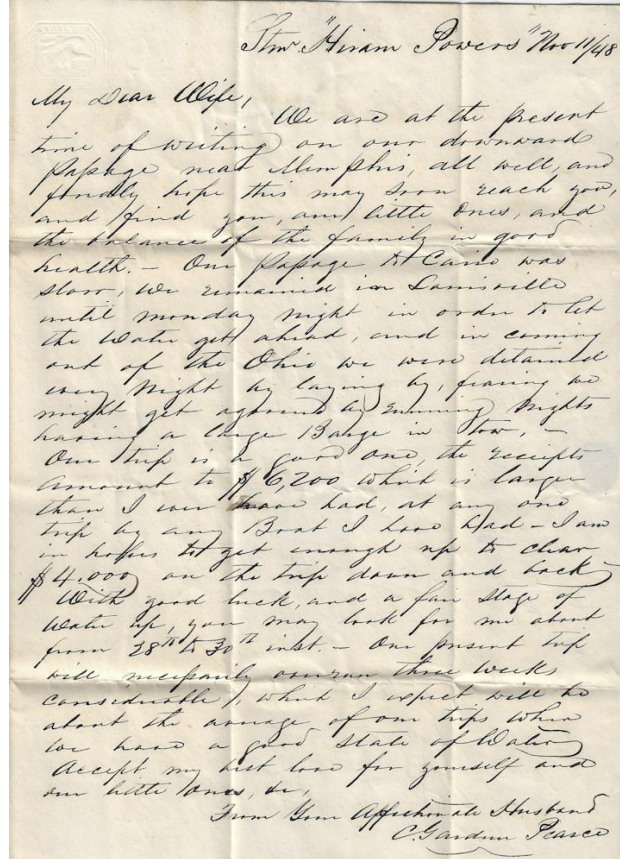 Stmr "Hiram Powers" Nov 11/48
My Dear Wife,
We are at the present
time of writing on our downward
Passage near Memphis, all well, and
fondly hope this may soon reach you,
and find you, our little Ones, and
the balance of the family in good
health. – Our Passage to Cairo was
slow, we remained in Louisville
until monday night in order to let
the Water get ahead, and in coming
out of the Ohio we were detained
every Night by laying by, fearing we
might get aground by running Nights
having a large Barge in tow, –
Our trip is a good one, the receipts
amount to $6,200 which is larger
than I ever have had, at any one
trip by any Boat I have had – I am
in hopes to get enough up to clear
$4.000 on the trip down and back
With good luck, and a fair Stage of
Water up, you may look for me about
from 28th to 30th inst. – Our present trip
will necessarily overrun three weeks
considerable, which I expect will be
about the average of our trips when
we have a good State of Water
Accept my best love for yourself and
our little Ones, &c,
From Your Affectionate Husband
C. Gardner Pearce